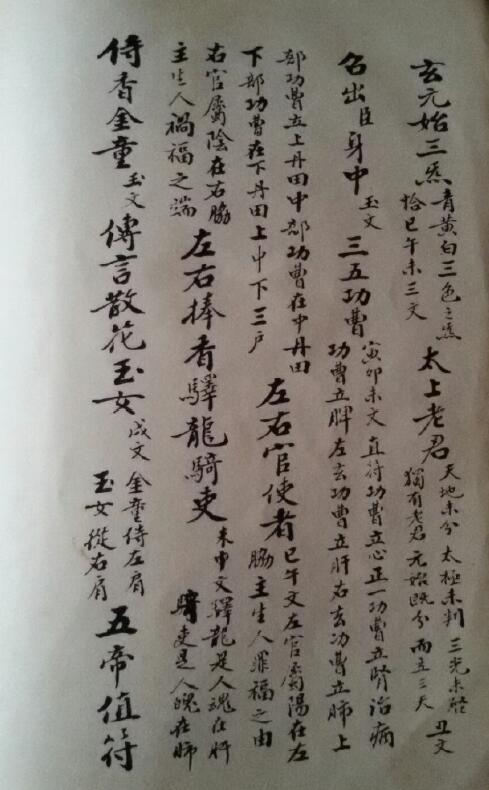 玄元始三炁
青黄白三色之炁
恰巳午未三文
太上老君
天地未分太極未判三光未
獨有老君元始既分而立三天
丑文
召出臣身中
玉文
三五功曹
寅卯未文直符功曹立心正一功曹立腎治病
功曹立脾左玄功曹立肝右玄功曹立肺上
部功曹立上丹田中部功曹在中丹田
下部功曹在下丹田上中下三户
左右官使者
巳午文左官屬陽在左
脇主生人罪福之由
右官屬陰在右脇
主生人禍福之端
左右捧香驛龍騎吏
未申文驛龍是人魂在肝
吏是人魄在肺
侍香金童
玉文
傳言散花玉女
戌文
金童侍左肩
玉女從右肩
五帝值符